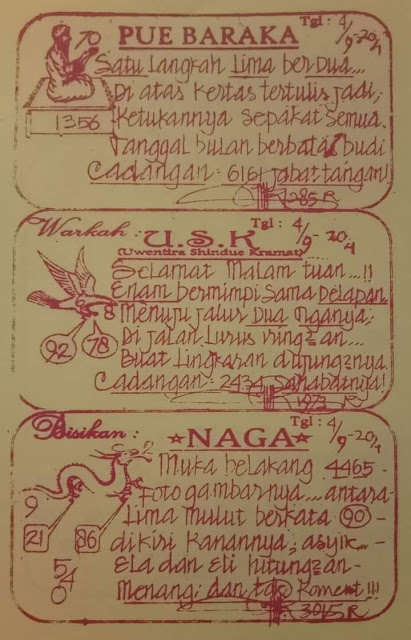 PUE BARAKA
Tgl: 4/9-2021
70
1356
Satu Langkah Lima berDua...
Di atas Kertas tertulis jadi,
Ketukannya sepakat semua.
Tanggal bulan berbata budi
Cadangan = 6161 Jabat tangan!
1985 R
Warkah:
U.S.K
(Uwentira Shindue Kramat)
Tgl: 4/9-2021
8
92 78
Selamat Malam tuan...!!
Enam bermimpi sama Delapan
Menuju jalur Dua nganya,
Di jalan Lurus
Buat Lingkaran
Cadangan = 2434 Sahabatnya!
1973 R
Bisikan:
NAGA
Tgl: 4/9-2021
9
21 86
5
4
0
Muka belakang 4465 -
Foto gambarnya... antara-
Lima mulut berkata 90 -
dikiri Kanannya; asyik... -
Ela dan Eli hitungzan -
Menang: dan tak Koment!!!
3045 R